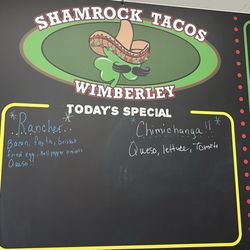 SHAMROCK TACOS
WIMBERLEY
TODAY'S SPECIAL
Rancher
Bacon, fajita, brisket
fried egg, bell pepper onions
Queso
Chimichanga!!
Queso, lettuce, Tomato